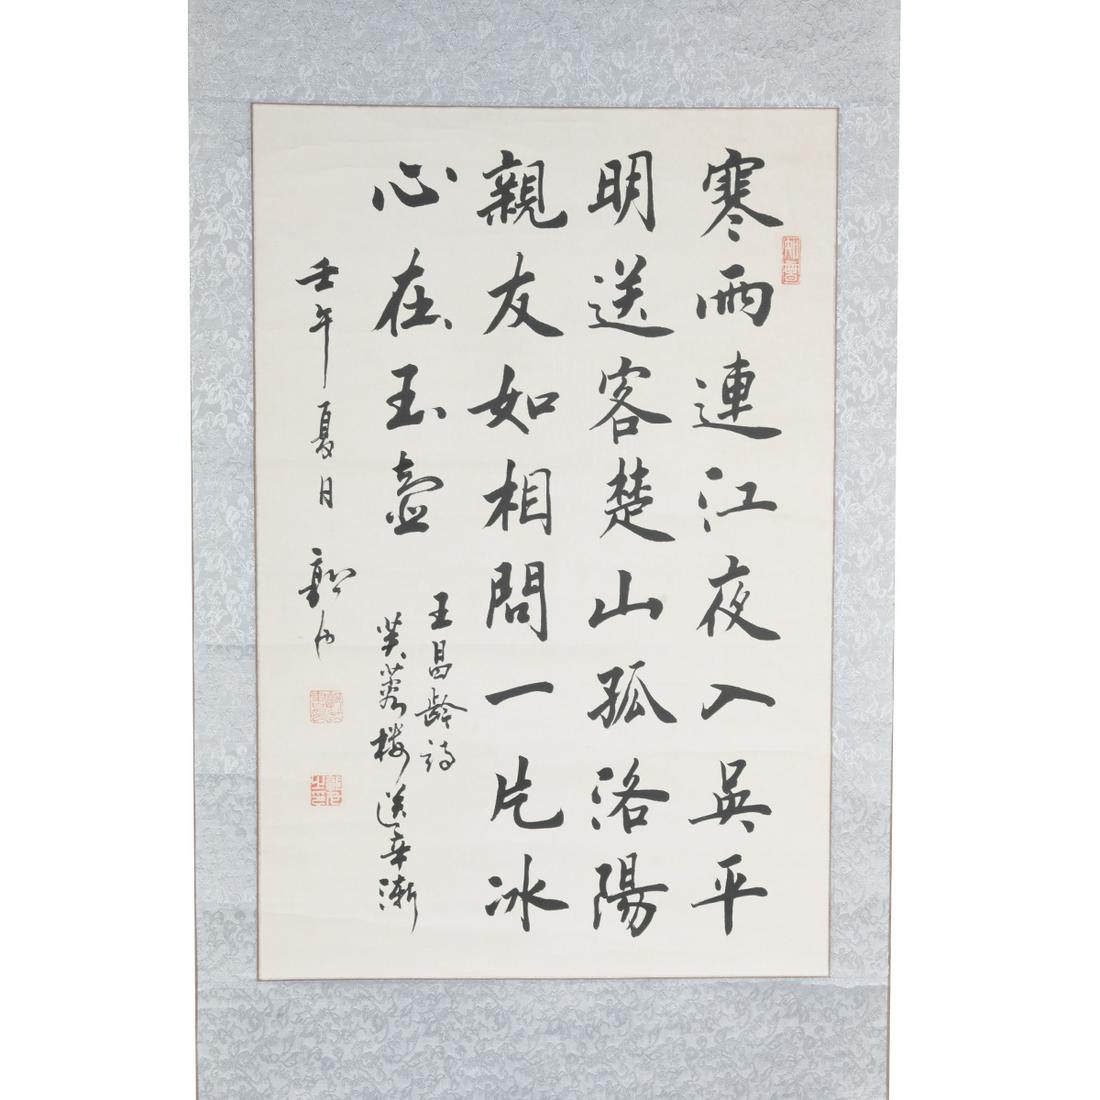 寒雨連江夜入吳平
明送客楚山孤洛陽
親友如相問一片冰
心在玉壺
王昌齡詩
芙蓉樓送辛漸
壬午夏日